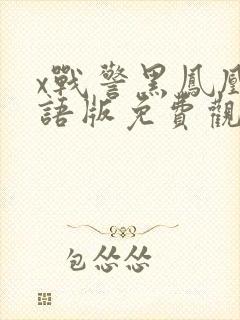 x戰警黑鳳凰
語版免費觀
包怂怂